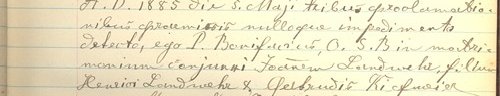 A. D. 1885 die 5. Maji tribus proclamatio-
nibus praemissis nulloque impedimento
detecto, ego P. Bonifacius, O. S. B in matri-
monium conjunxi Joanem Landwehr, filium
Henrici Landwehr & Gertrudis Kiefmeier